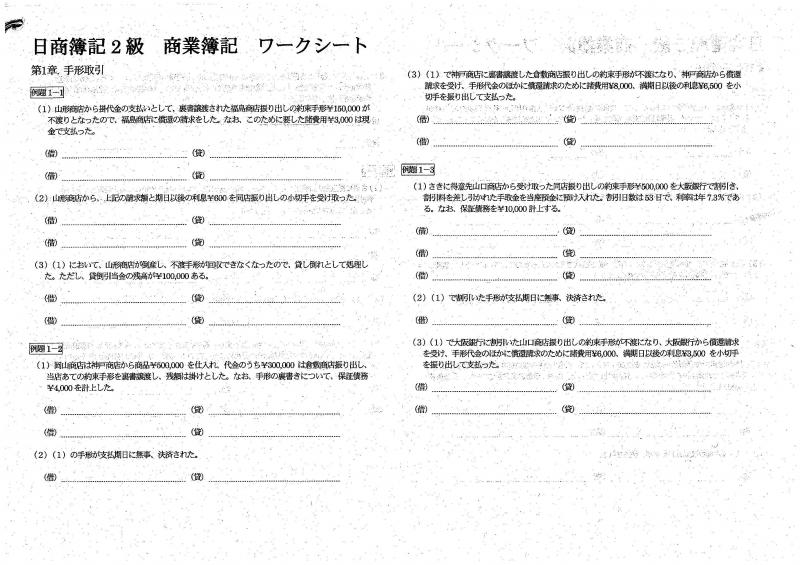 日商簿記2級 商業簿記 ワークシート
第1章 手形取引
例題1-1
(1)山形商店から掛代金の支払いとして、裏書譲渡された福島商店振り出しの約束手形¥150,000が
不渡りとなったので、福島商店に償還の請求をした。なお、このために要した諸費用¥3,000は現
金で支払った。
(借) (貸)
(借) (貸)
(2)山形商店から、上記の請求額と期日以後の利息¥600を同店振り出しの小切手を受け取った。
(借) (貸)
(借) (貸)
(3)(1)において、山形商店が倒産し、不渡手形が回収できなくなったので、貸し倒れとして処理し
た。ただし、貸倒引当金の残高が¥100,000ある。
(借) (貸)
(借) (貸)
例題1-2
(1)岡山商店は神戸商店から商品¥500,000を仕入れ、代金のうち¥300,000は倉敷商店振り出し、
当店あての約束手形を裏書譲渡し、残額は掛けとした。なお、手形の裏書きについて、保証債務
¥4,000を計上した。
(借) (貸)
(借) (貸)
(2)(1)の手形が支払期日に無事、決済された。
(借) (貸)
(3)(1)で神戸商店に裏書譲渡した倉敷商店振り出しの約束手形が不渡になり、神戸商店から償還
請求を受け、手形代金のほかに償還請求のために諸費用¥8,000、満期日以後の利息¥6,500を小
切手を振り出して支払った。
(借) (貸)
(借) (貸)
例題1-3
(1)さきに得意先山口商店から受け取った同店振り出しの約束手形¥500,000を大阪銀行で割引き、
割引料を差し引かれた手取金を当座預金に預け入れた。割引日数は53日で、利率は年7.3%であ
る。なお、保証債務を¥10,000計上する。
(借) (貸)
(借) (貸)
(借) (貸)
(2)(1)で割引いた手形が支払期日に無事、決済された。
(借) (貸)
(3)(1)で大阪銀行に割引いた山口商店振り出しの約束手形が不渡になり、大阪銀行から償還請求
を受け、手形代金のほかに償還請求のために諸費用¥6,000、満期日以後の利息¥3,500を小切手
を振り出して支払った。
(借) (貸)
(借) (貸)